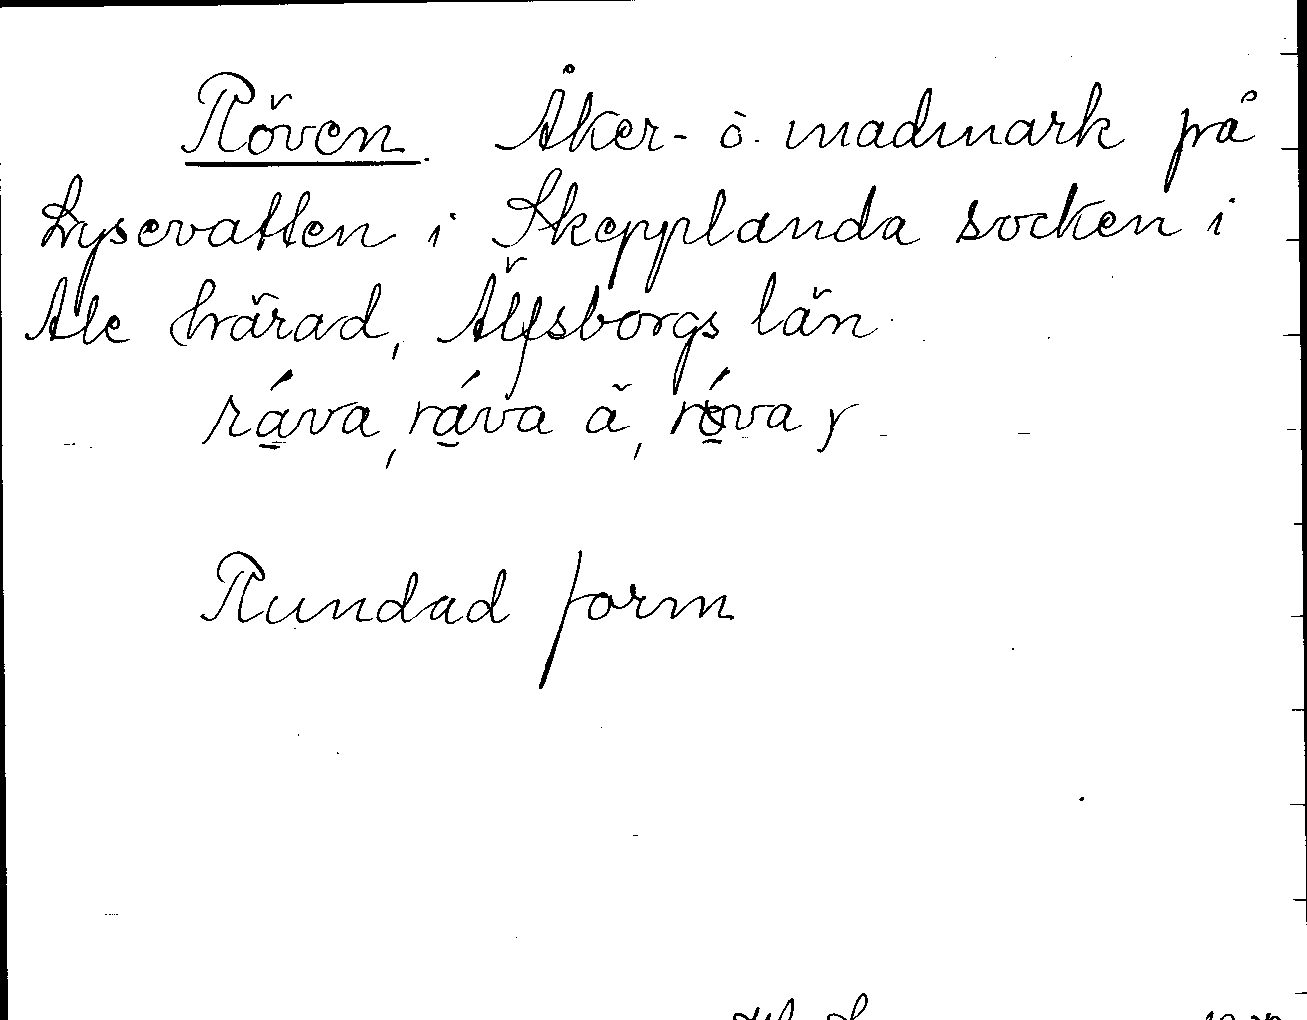 Röven. Åker- o. madmark på
Lysevatten i Skepplanda socken i
Ale härad, Älfsborgs län.
ráva, ráva ä, róva y
Rundad form